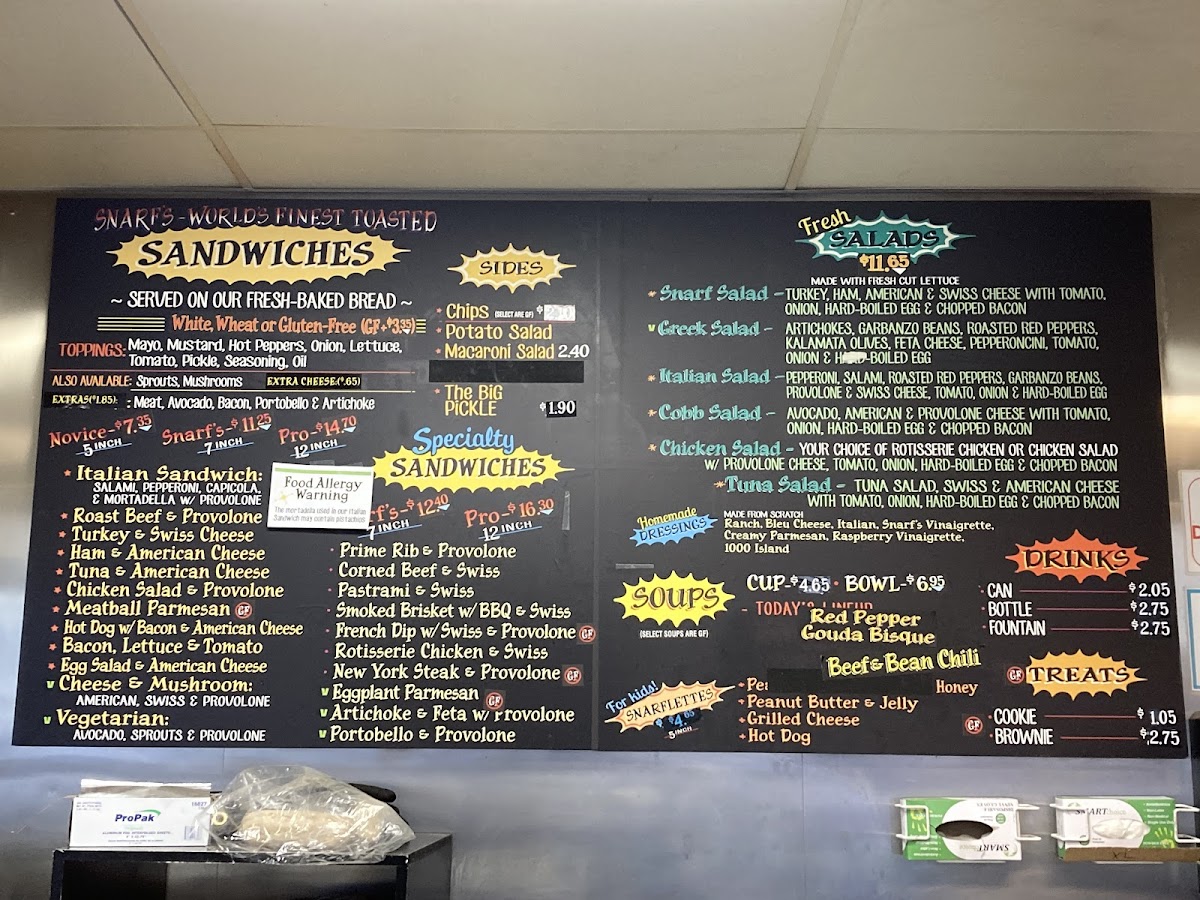 SNARF'S - WORLD'S FINEST TOASTED
SANDWICHES
~ SERVED ON OUR FRESH-BAKED BREAD ~
White, Wheat or Gluten-Free (GF+$3.35)
TOPPINGS: Mayo, Mustard, Hot Peppers, Onion, Lettuce,
Tomato, Pickle, Seasoning, Oil
ALSO AVAILABLE: Sprouts, Mushrooms EXTRA CHEESE($.65)
EXTRAS($1.85): : Meat, Avocado, Bacon, Portobello & Artichoke
Novice-$7.35
5 INCH
Snarf's-$11.25
7 INCH
Pro-$14.70
12 INCH
Italian Sandwich:
SALAMI, PEPPERONI, CAPICOLA,
& MORTADELLA W/ PROVOLONE
Roast Beef & Provolone
Turkey & Swiss Cheese
Ham & American Cheese
Tuna & American Cheese
Chicken Salad & Provolone
Meatball Parmesan GF
Hot Dog w/ Bacon & American Cheese
Bacon, Lettuce & Tomato
Egg Salad & American Cheese
V Cheese & Mushroom:
AMERICAN, SWISS & PROVOLONE
V Vegetarian:
AVOCADO, SPROUTS & PROVOLONE
Food Allergy
Warning
The mortadella used in our Italian
Sandwich may contain pistachios
SIDES
Chips (SELECT ARE GF) $
Potato Salad
Macaroni Salad 2.40
The BiG
PiCKLE $1.90
Specialty
SANDWICHES
f's-$12.40
7 INCH
Pro-$16.30
12 INCH
Prime Rib & Provolone
Corned Beef & Swiss
Pastrami & Swiss
Smoked Brisket w/ BBQ & Swiss
French Dip w/ Swiss & Provolone GF
Rotisserie Chicken & Swiss
New York Steak & Provolone GF
V Eggplant Parmesan GF
V Artichoke & Feta w/ Provolone
V Portobello & Provolone
Fresh
SALADS
$11.65
MADE WITH FRESH CUT LETTUCE
Snarf Salad - TURKEY, HAM, AMERICAN & SWISS CHEESE WITH TOMATO,
ONION, HARD-BOILED EGG & CHOPPED BACON
V Greek Salad - ARTICHOKES, GARBANZO BEANS, ROASTED RED PEPPERS,
KALAMATA OLIVES, FETA CHEESE, PEPPERONCINI, TOMATO,
ONION & HARD-BOILED EGG
Italian Salad - PEPPERONI, SALAMI, ROASTED RED PEPPERS, GARBANZO BEANS,
PROVOLONE & SWISS CHEESE, TOMATO, ONION & HARD-BOILED EGG
Cobb Salad - AVOCADO, AMERICAN & PROVOLONE CHEESE WITH TOMATO,
ONION, HARD-BOILED EGG & CHOPPED BACON
Chicken Salad - YOUR CHOICE OF ROTISSERIE CHICKEN OR CHICKEN SALAD
W/ PROVOLONE CHEESE, TOMATO, ONION, HARD-BOILED EGG & CHOPPED BACON
Tuna Salad - TUNA SALAD, SWISS & AMERICAN CHEESE
WITH TOMATO, ONION, HARD-BOILED EGG & CHOPPED BACON
Homemade
DRESSINGS
MADE FROM SCRATCH
Ranch, Bleu Cheese, Italian, Snarf's Vinaigrette,
Creamy Parmesan, Raspberry Vinaigrette,
1000 Island
SOUPS
(SELECT SOUPS ARE GF)
CUP-$4.65 · BOWL-$6.95
- TODAY'S LINEUP
Red Pepper
Gouda Bisque
Beef & Bean Chili
For kids!
SNARFLETTES
$4.65
5 INCH
Honey
Peanut Butter & Jelly
Grilled Cheese
Hot Dog
DRINKS
CAN $2.05
BOTTLE $2.75
FOUNTAIN $2.75
GF TREATS
COOKIE $1.05
GF BROWNIE $2.75
ProPak
SMART
SMART
XL